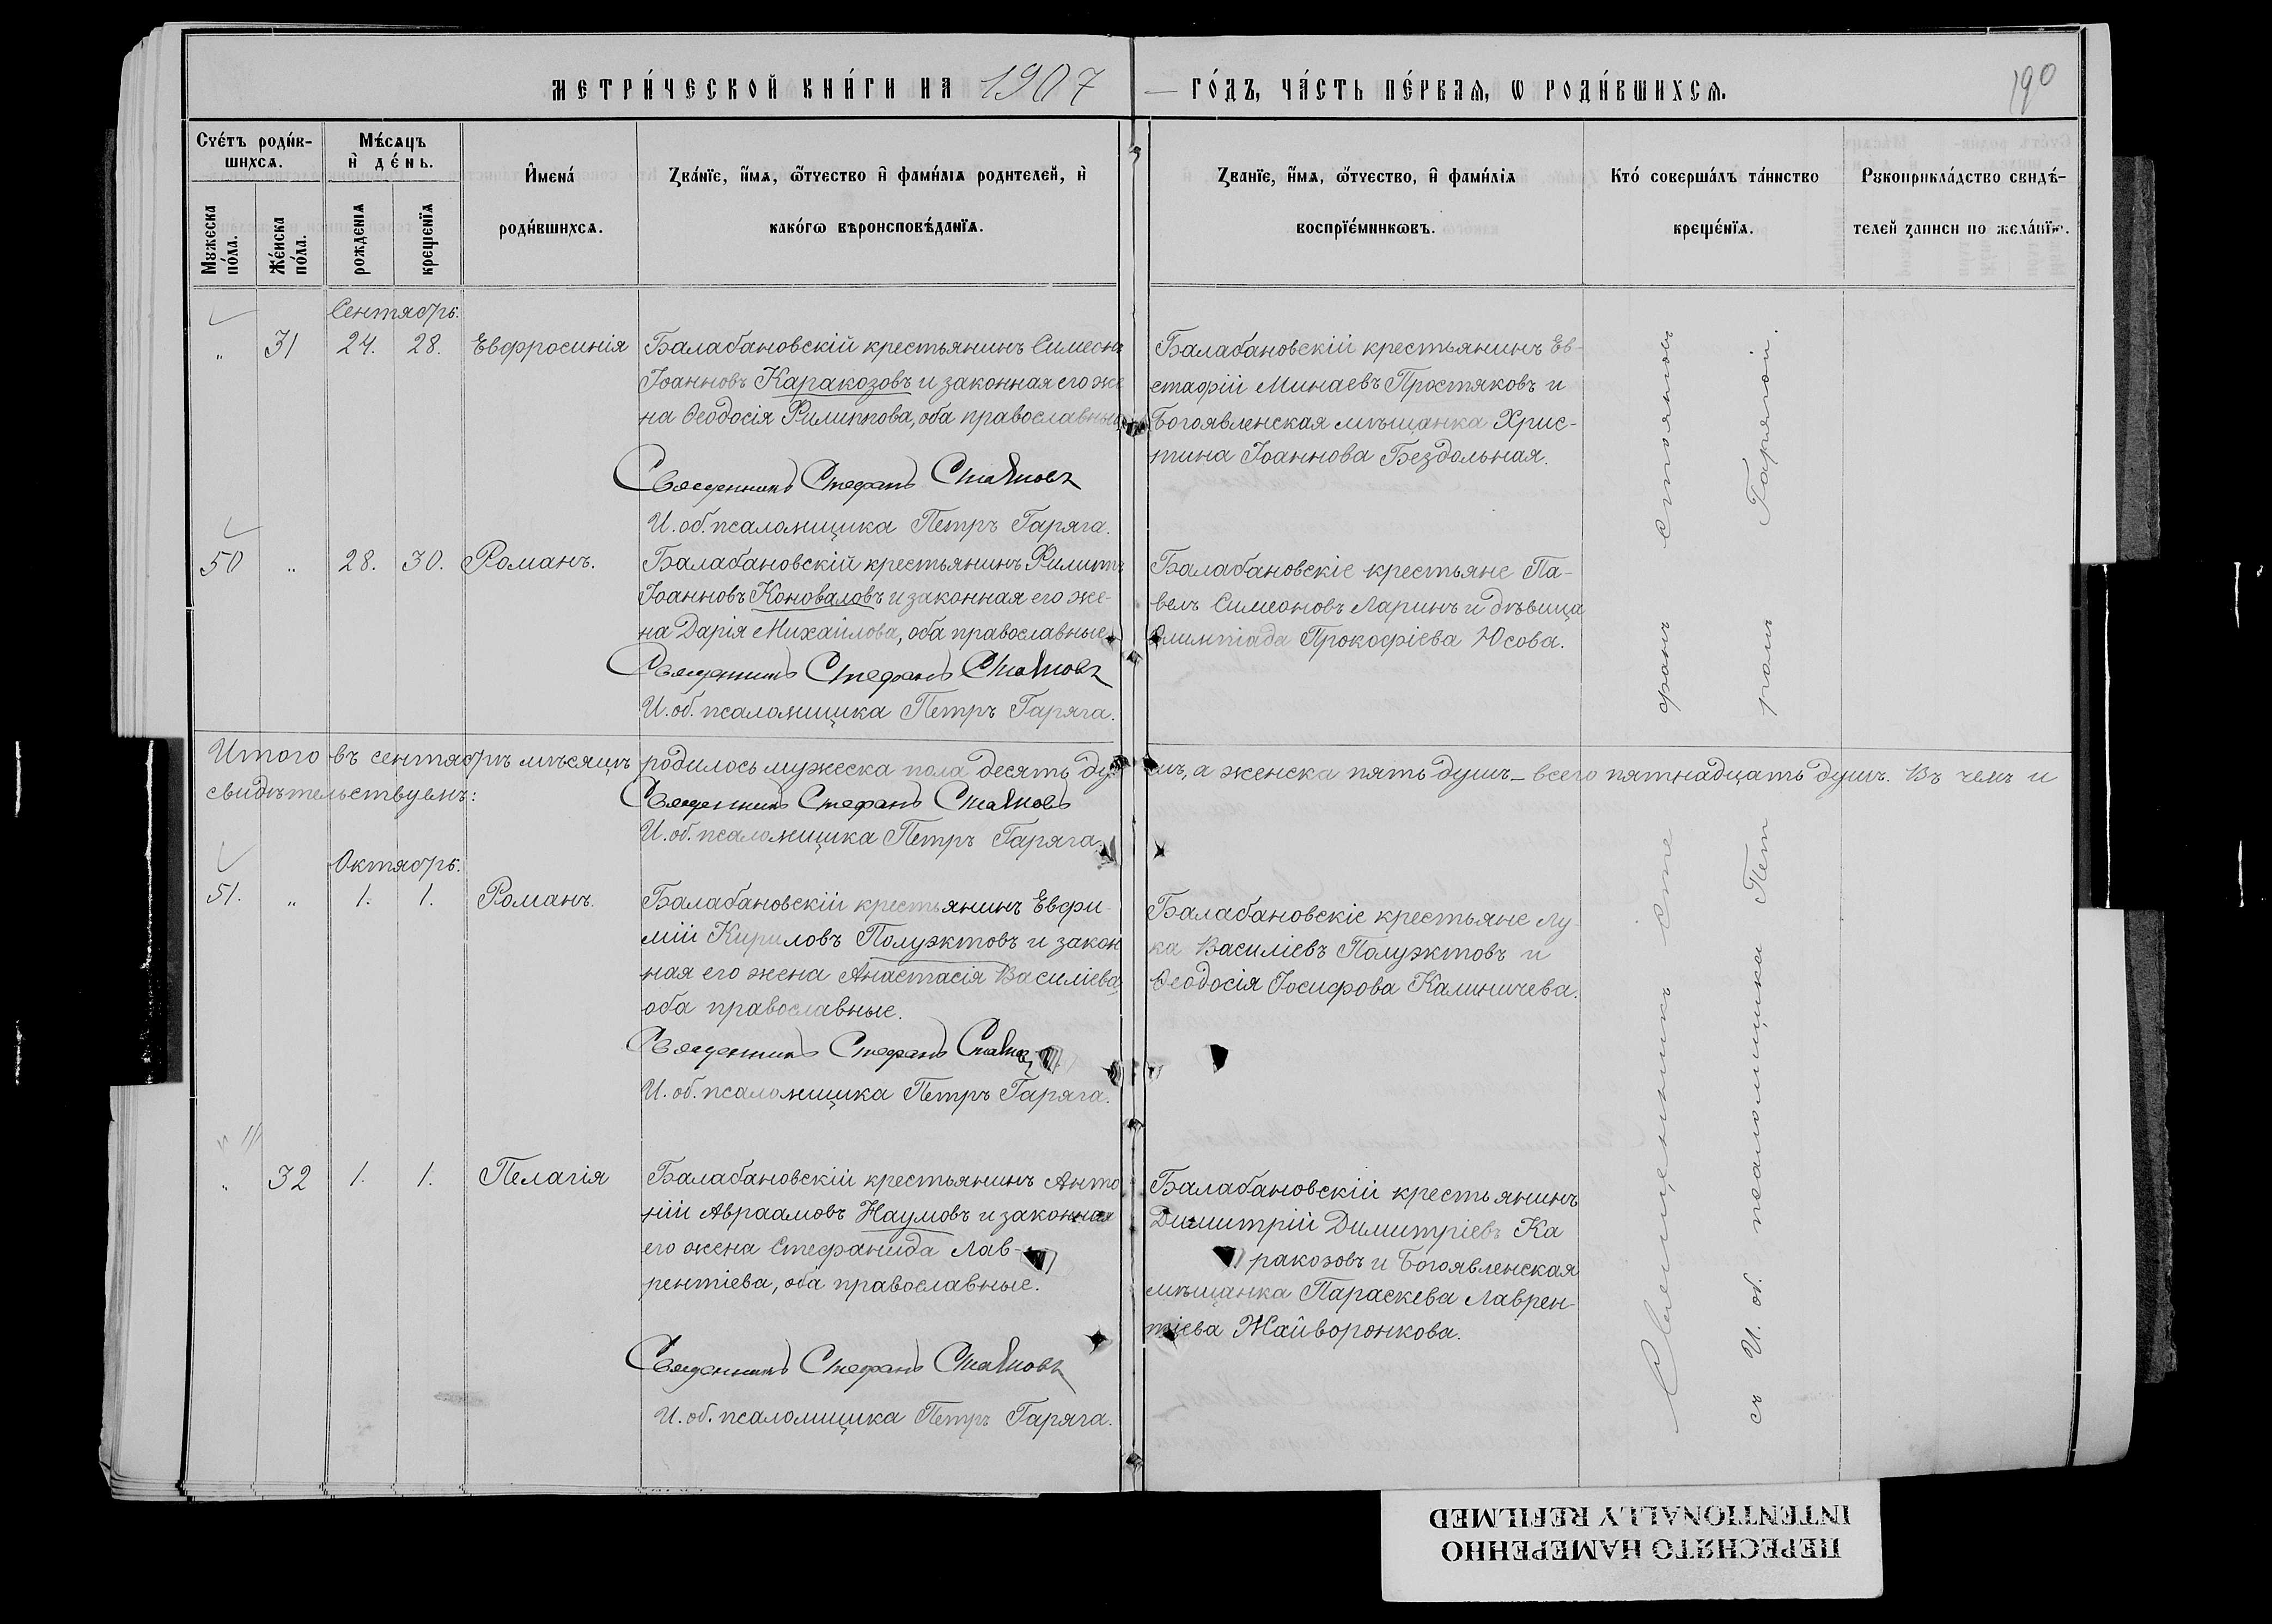 МЕТРИ́ЧЕСКОЙ КНИ́ГИ НА 1907 ГО́ДЪ, ЧА́СТЬ ПЕ́РВАѦ, Ѡ РОДИ́ВШИХСѦ.
190
Счетъ роди́в-
шихсѧ.
Мужеска
по́ла.
Же́нска
по́ла.
Мѣ́сѧцъ
и҆ де́нь.
рожденїѧ
крещенїѧ
И҆мена́
роди́вшихсѧ.
Зва́нїе, и҆́мѧ, ѻ҆́тчество и҆ фами́лїѧ родителей, и҆
како́гѡ вѣроисповѣ́данїѧ.
Званїе, и҆́мѧ, ѻ҆́тчество, и҆ фами́лїѧ
воспрїе́мникѡвъ.
Кто́ соверша́лъ та́инство
креще́нїѧ.
Рукоприкла́дство свидѣ́-
телей записи по жела́нїю.
Сентябрь.
„ 31 24. 28. Евфросинія
Балабановскій крестьянинъ Симеонъ
Іоанновъ Каракозовъ и законная его же
на Ѳеодосія Филиппова, оба православные
Священникъ Стефанъ Стояновъ
И. об. псаломщика Петръ Гаряга.
Балабановскій крестьянинъ Ев-
стафій Минаевъ Простяковъ и
Богоявленская мѣщанка Хрис-
тина Іоаннова Бездольная.
50 „ 28. 30. Романъ.
Балабановскій крестьянинъ Филиппъ
Іоанновъ Коноваловъ и законная его же-
на Дарія Михайлова, оба православные
Священникъ Стефанъ Стояновъ
И. об. псаломщика Петръ Гаряга.
Балабановскіе крестьяне Па-
велъ Симеоновъ Ларинъ и дѣвица
Олимпіада Прокофіева Юсова.
Итого въ сентябрѣ мѣсяцѣ родилось мужеска пола десять душъ, а женска пять душъ – всего пятнадцать душъ. Въ чемъ и
свидѣтельствуемъ:
Священникъ Стефанъ Стояновъ
И. об. псаломщика Петръ Гаряга.
Октябрь.
51. „ 1. 1. Романъ.
Балабановскій крестьянинъ Евфи-
мій Кириловъ Полуэктовъ и закон
ная его жена Анастасія Василіева,
оба православные.
Священникъ Стефанъ Стояновъ
И. об. псаломщика Петръ Гаряга.
Балабановскіе крестьяне Лу
ка Василіевъ Полуэктовъ и
Ѳеодосія Іосифова Калиничева.
„ 32 1. 1. Пелагія
Балабановскій крестьянинъ Анто
ній Авраамовъ Наумовъ и законная
его жена Стефанида Лав-
рентіева, оба православные.
Священникъ Стефанъ Стояновъ
И. об. псаломщика Петръ Гаряга.
Балабановскій крестьянинъ
Димитрій Димитріевъ Ка
ракозовъ и Богоявленская
мѣщанка Параскева Лаврен-
тіева Жайворонкова.
Священникъ Стефанъ Стояновъ
съ И. об. псаломщика Петромъ Гарягой.
ПЕРЕСНЯТО НАМЕРЕННО
INTENTIONALLY REFILMED